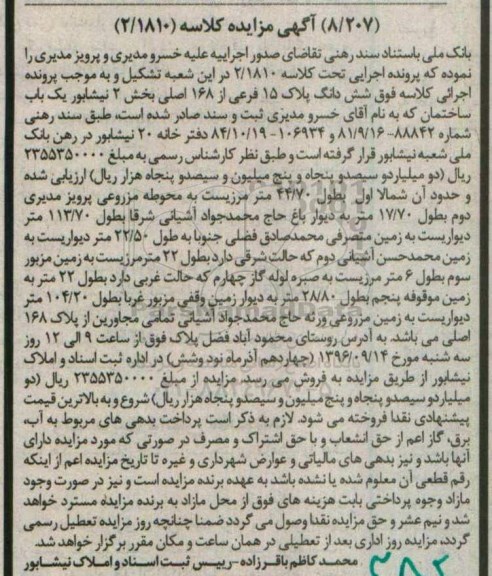 (۸/۲۰۷) آگهی مزایده کلاسه (۲/۱۸۱۰)
بانک ملی باستناد سند رهنی تقاضای صدور اجراییه علیه خسرو مدیری و پرویز مدیری را
نموده که پرونده اجرایی تحت کلاسه ۲/۱۸۱۰ در این شعبه تشکیل و به موجب پرونده
اجرائی کلاسه فوق شش دانگ پلاک ۱۵ فرعی از ۱۶۸ اصلی بخش ۲ نیشابور یک باب
ساختمان که به نام آقای خسرو مدیری ثبت و سند صادر شده است، طبق سند رهنی
شماره ۸۸۸۴۲-۸۱/۹/۱۶ و ۱۰۶۹۳۴-۸۴/۱۰/۱۹ دفتر خانه ۲۰ نیشابور در رهن بانک
ملی شعبه نیشابور قرار گرفته است و طبق نظر کارشناس رسمی به مبلغ ۲۳۵۵۳۵۰۰۰۰
ریال (دو میلیارد و سیصدو پنجاه و پنج میلیون و سیصدو پنجاه هزار ریال) ارزیابی شده
و حدود آن شمالا اول بطول ۴۴/۷۰ متر مرزیست به محوطه مزروعی پرویز مدیری
دوم بطول ۱۷/۷۰ متر به دیوار باغ حاج محمدجواد آشیانی شرقا بطول ۱۱۳/۷۰ متر
دیواریست به زمین متصرفی محمدصادق فضلی جنوبا به طول ۲۲/۵۰ متر دیواریست به
زمین محمدحسن آشیانی دوم که حالت شرقی دارد بطول ۲۲ مترمرزیست به زمین مزبور
سوم بطول ۶ متر مرزیست به صبره لوله گاز چهارم که حالت غربی دارد بطول ۲۲ متر به
زمین موقوفه پنجم بطول ۲۸/۸۰ متر به دیوار زمین وقفی مزبور غربا بطول ۱۰۴/۲۰ متر
دیواریست به زمین مزروعی ورثه حاج محمدجواد آشیانی تمامی مجاورین از پلاک ۱۶۸
اصلی می باشد. به آدرس روستای محمود آباد فضل پلاک فوق از ساعت ۹ الی ۱۲ روز
سه شنبه مورخ ۱۳۹۶/۰۹/۱۴ (چهاردهم آذرماه نود وشش) در اداره ثبت اسناد و املاک
نیشابور از طریق مزایده به فروش می رسد. مزایده از مبلغ ۲۳۵۵۳۵۰۰۰۰ ریال (دو
میلیارد و سیصدو پنجاه و پنج میلیون و سیصدو پنجاه هزار ریال) شروع و به بالاترین قیمت
پیشنهادی نقدا فروخته می شود. لازم به ذکر است پرداخت بدهی های مربوط به آب،
برق، گاز اعم از حق انشعاب و یا حق اشتراک و مصرف در صورتی که مورد مزایده دارای
آنها باشد و نیز بدهی های مالیاتی و عوارض شهرداری و غیره تا تاریخ مزایده اعم از اینکه
رقم قطعی آن معلوم شده یا نشده باشد به عهده برنده مزایده است و نیز در صورت وجود
مازاد وجوه پرداختی بابت هزینه های فوق از محل مازاد به برنده مزایده مسترد خواهد
شد و نیم عشر و حق مزایده نقدا وصول می گردد ضمنا چنانچه روز مزایده تعطیل رسمی
گردد، مزایده روز اداری بعد از تعطیلی در همان ساعت و مکان مقرر برگزار خواهد شد.
محمد کاظم باقرزاده - رییس ثبت اسناد و املاک نیشابور
۳۸۲